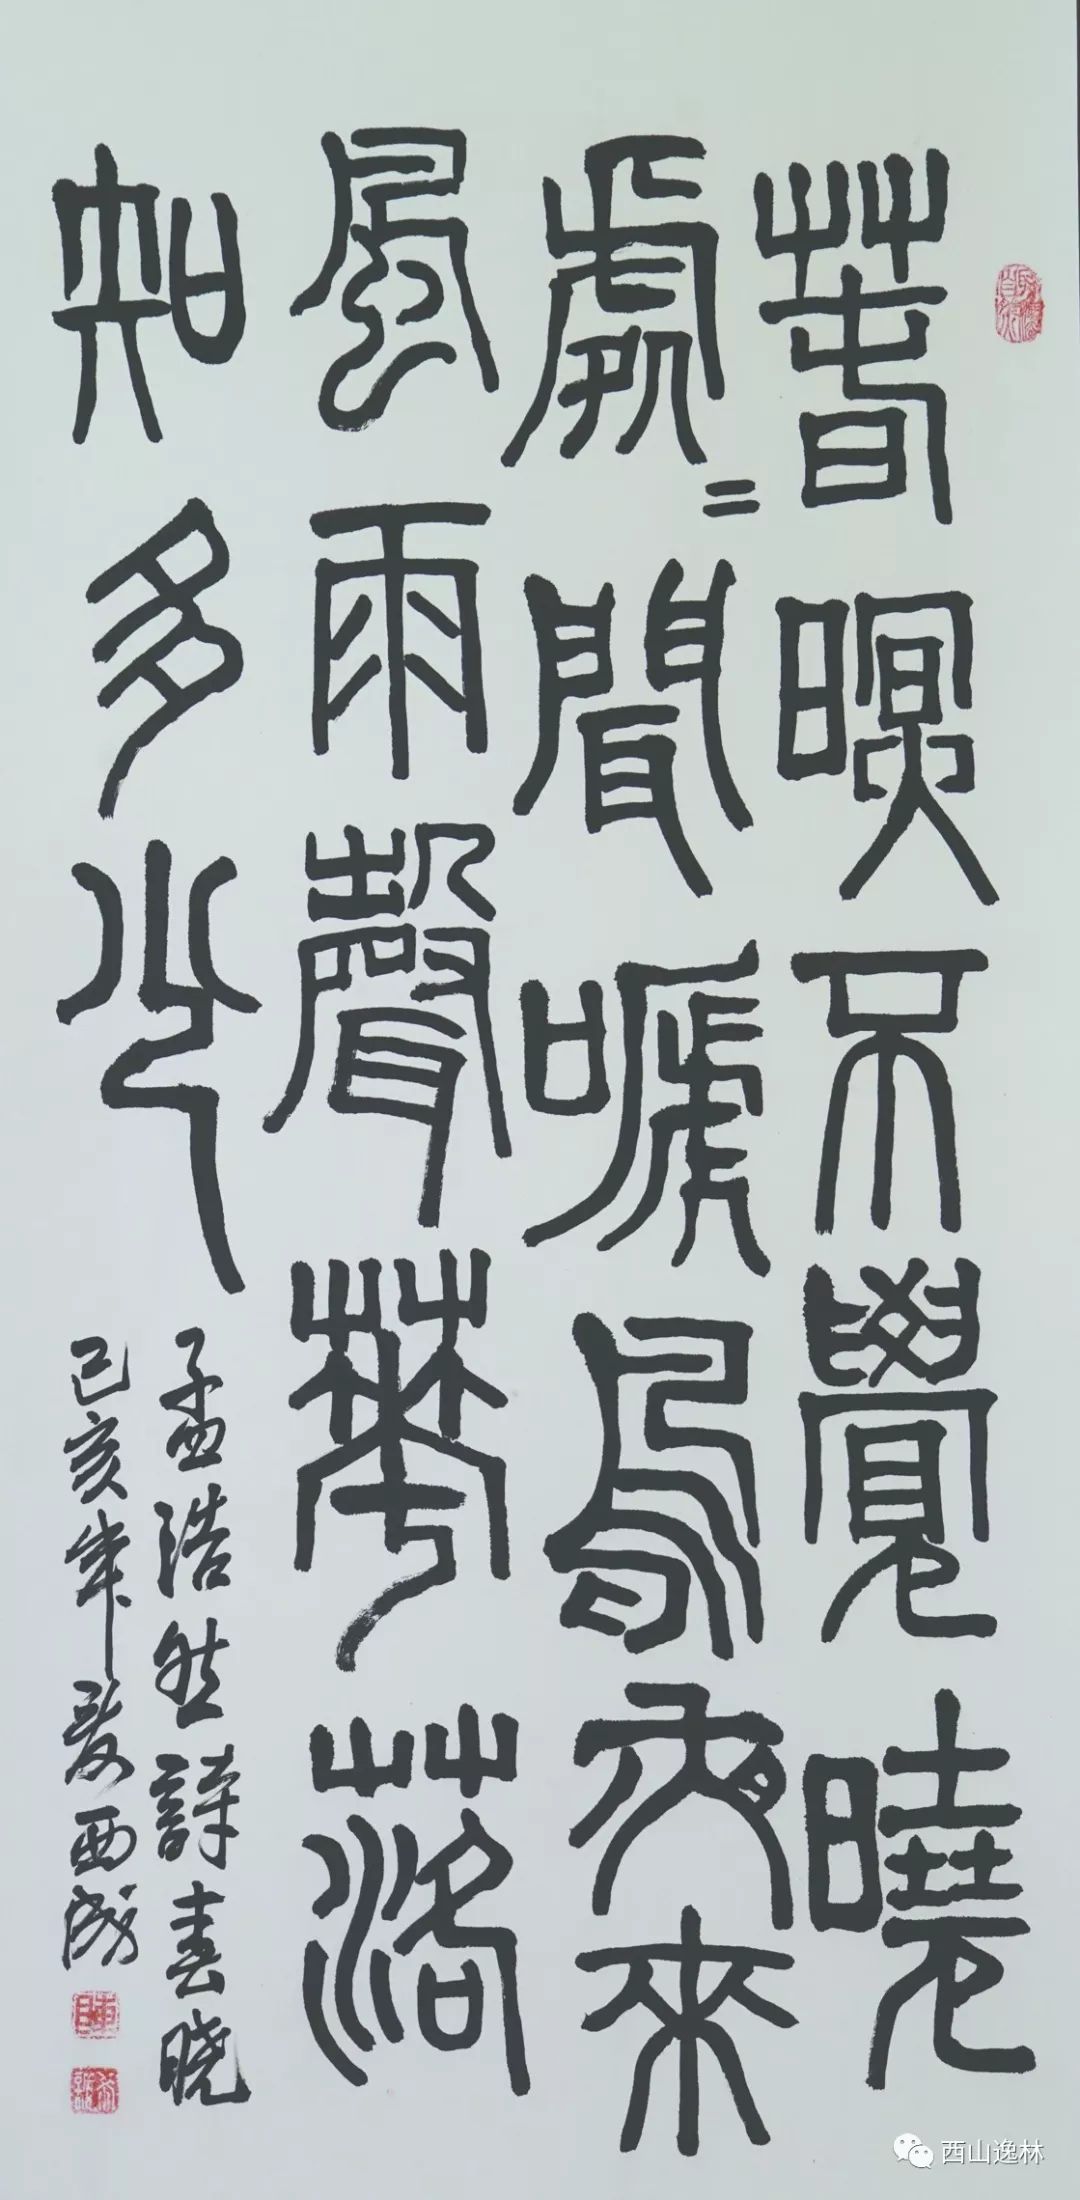 春暝不覺曉
處〻聞嗁鳥夜來
風雨聲華落
知多少
孟浩然詩春晓
己亥年夏西成
西山逸林